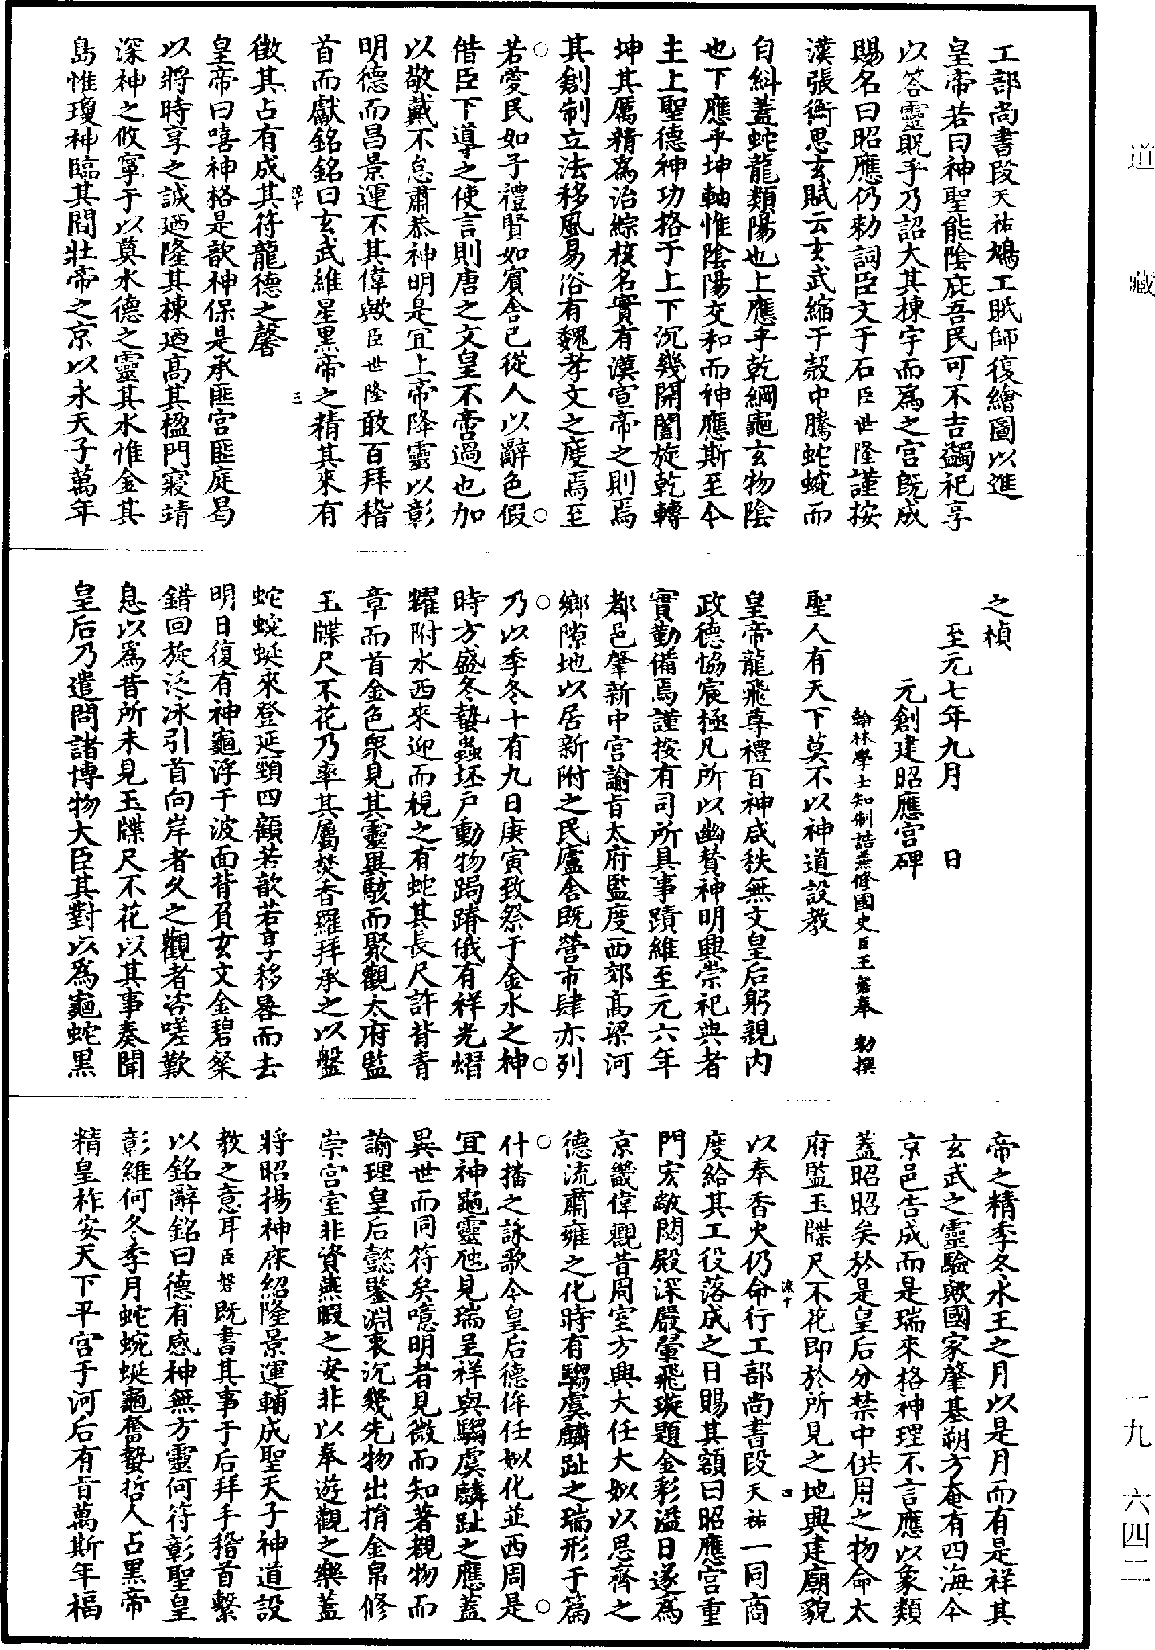 工部尚書段天祐鳩工眡師復繪圖以進
皇帝若曰神聖能陰庇吾民可不吉蠲祀享
以答靈貺乎乃詔大其棟宇而爲之宮既成
賜名曰昭應仍勅詞臣文于石臣世隆謹按
漢張衡思玄賦云玄武縮于殼中騰蛇蜿而
自糾蓋蛇龍類陽也上應乎乾綱龜玄物陰
也下應乎坤軸惟陰陽交和而神應斯至今
主上聖德神功格于上下沉幾開闔旋乾轉
坤其厲精爲治綜核名實有漢宣帝之則焉
其創制立法移風易俗有魏孝文之度焉至
若愛民如子禮賢如賓舍己從人以辭色假
借臣下導之使言則唐之文皇不啻過也加
以敬戴不怠肅恭神明是宜上帝降靈以彰
明德而昌景運不其偉歟臣世隆敢百拜稽
首而獻銘銘曰玄武維星黑帝之精其來有
徵其占有成其符龍德之馨
皇帝曰嘻神格是歆神保是承匪宮匪庭曷
以將時享之誠迺隆其棟迺高其楹門寢靖
深神之攸寧于以奠水德之靈其水惟金其
島惟瓊神臨其間壯帝之京以永天子萬年
之楨
至元七年九月　日
元創建昭應宮碑
翰林學士知制誥兼修國史臣王磐奉　勅撰
聖人有天下莫不以神道設教
皇帝龍飛尊禮百神咸秩無文皇后躬親內
政德協宸極凡所以幽贊神明興崇祀典者
實勤備焉謹按有司所具事蹟維至元六年
都邑肇新中宮諭旨太府監度西郊高梁河
鄉隙地以居新附之民廬舍既營市肆亦列
乃以季冬十有九日庚寅致祭于金水之神
時方盛冬蟄蟲坯戶動物跼蹐俄有祥光熠
耀附水西來迎而視之有蛇其長尺許背青
章而首金色衆見其靈異駭而聚觀太府監
玉牒尺不花乃率其屬焚香羅拜承之以盤
蛇蜿蜒來登延頸四顧若歆若享移晷而去
明日復有神龜浮于波面背負玄文金碧粲
錯回旋泛冰引首向岸者久之觀者咨嗟歎
息以爲昔所未見玉牒尺不花以其事奏聞
皇后乃遣問諸博物大臣其對以爲龜蛇黑
帝之精季冬水王之月以是月而有是祥其
玄武之靈驗歟國家肇基朔方奄有四海今
京邑告成而是瑞來格神理不言應以象類
蓋昭昭矣於是皇后分禁中供用之物命太
府監玉牒尺不花即於所見之地興建廟貌
以奉香火仍命行工部尚書段天祐一同商
度給其工役落成之日賜其額曰昭應宮重
門宏敞閟殿深嚴翬飛璇題金彩溢日遂爲
京畿偉觀昔周室方興大任大姒以思齊之
德流肅雍之化時有騶虞麟趾之瑞形于篇
什播之詠歌今皇后德侔任姒化並西周是
宜神龜靈虵見瑞呈祥與騶虞麟趾之應蓋
異世而同符矣噫明者見微而知著觀物而
諭理皇后懿鑒淵衷沉幾先物出捐金帛修
崇宮室非資燕暇之安非以奉遊觀之樂蓋
將昭揚神庥紹隆景運輔成聖天子神道設
教之意耳臣磐既書其事于后拜手稽首繫
以銘辭銘曰德有感神無方靈何符彰聖皇
彰維何冬季月蛇蜿蜒龜奮蟄哲人占黑帝
精皇祚安天下平宮于河后有旨萬斯年福
道藏
一九　六四二